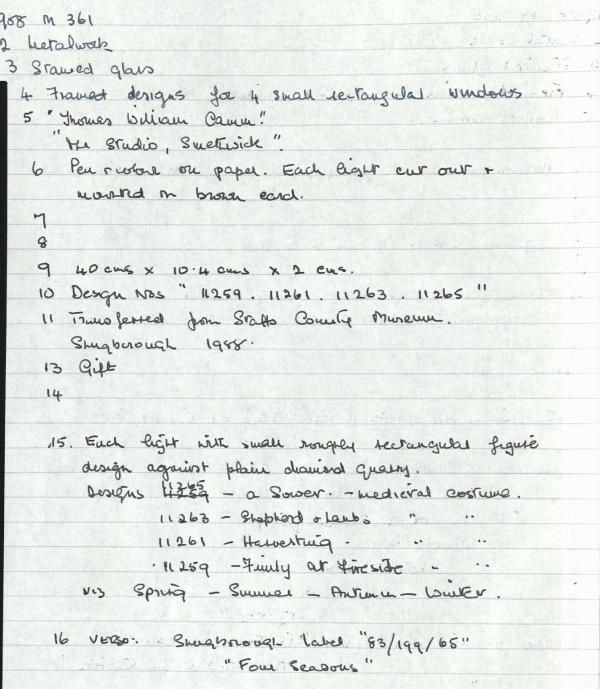 908 M 361
2 Metalwork
3 Stained glass
4 Framed designs for 4 small rectangular windows
5 "Thomas William Camm."
"The Studio, Smethwick".
6 Pen & colour on paper. Each light cut out &
mounted on brown card.
7
8
9 40 cms x 10.4 cms x 2 cms.
10 Design Nos " 11259 . 11261 . 11263 . 11265 "
11 Transferred from Staffs County Museum.
Shugborough 1988.
13 Gift
14
15. Each light with small roughly rectangular figure
design against plain diamond quarry.
Designs 11265 - a Sower. - medieval costume.
11263 - Shepherd & lambs " "
11261 - Harvesting - " "
11259 - Family at fireside - "
viz Spring - Summer - Autumn - Winter.
16 VERSO: Shugborough label "83/199/65"
"Four Seasons"